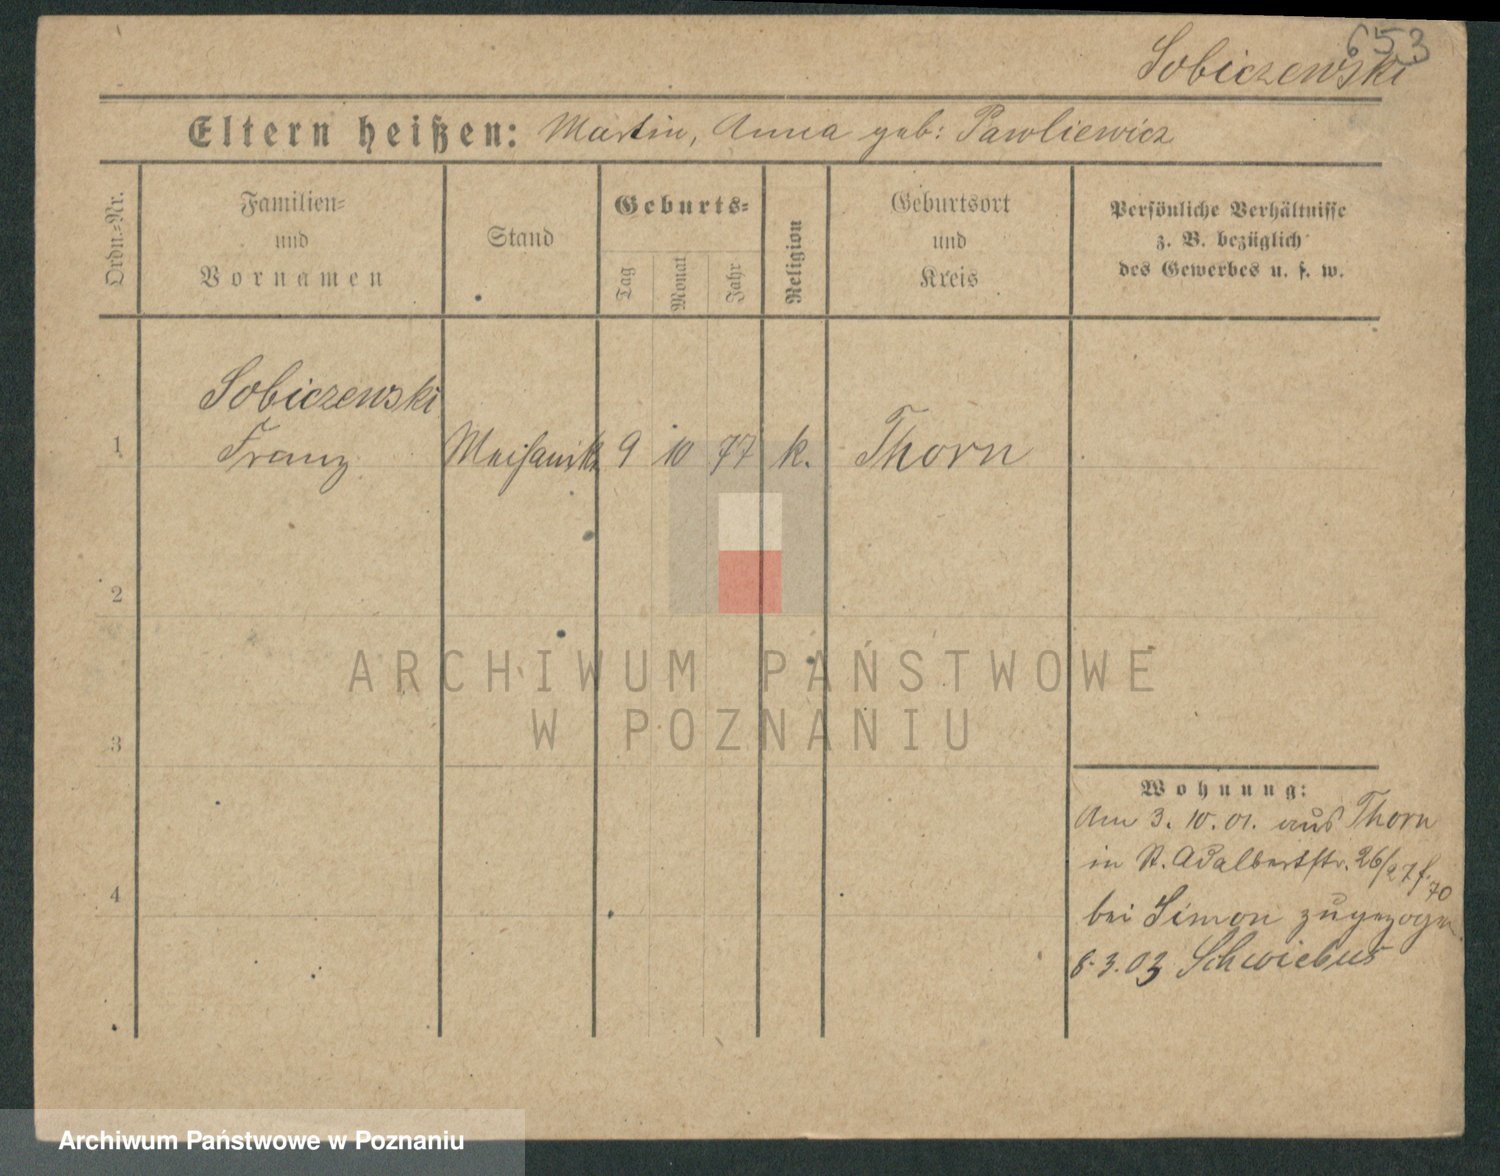 653
Sobiczewski
Eltern heißen: Martin, Anna geb: Pawliewicz
Ordn.-Nr.
Familien-
und
Vornamen
Stand
Geburts-
Tag
Monat
Jahr
Religion
Geburtsort
und
Kreis
Persönliche Verhältnisse
z. B. bezüglich
des Gewerbes u. s. w.
Sobiczewski
1 Franz 9 10 77 k. Thorn
2
3
4
Wohnung:
Am 3. 10. 01. aus Thorn
in St. Adalbertstr. 26/27
bei Simon zugezogen
3.03 Schwiebus
ARCHIWUM PAŃSTWOWE
W POZNANIU
Archiwum Państwowe w Poznaniu